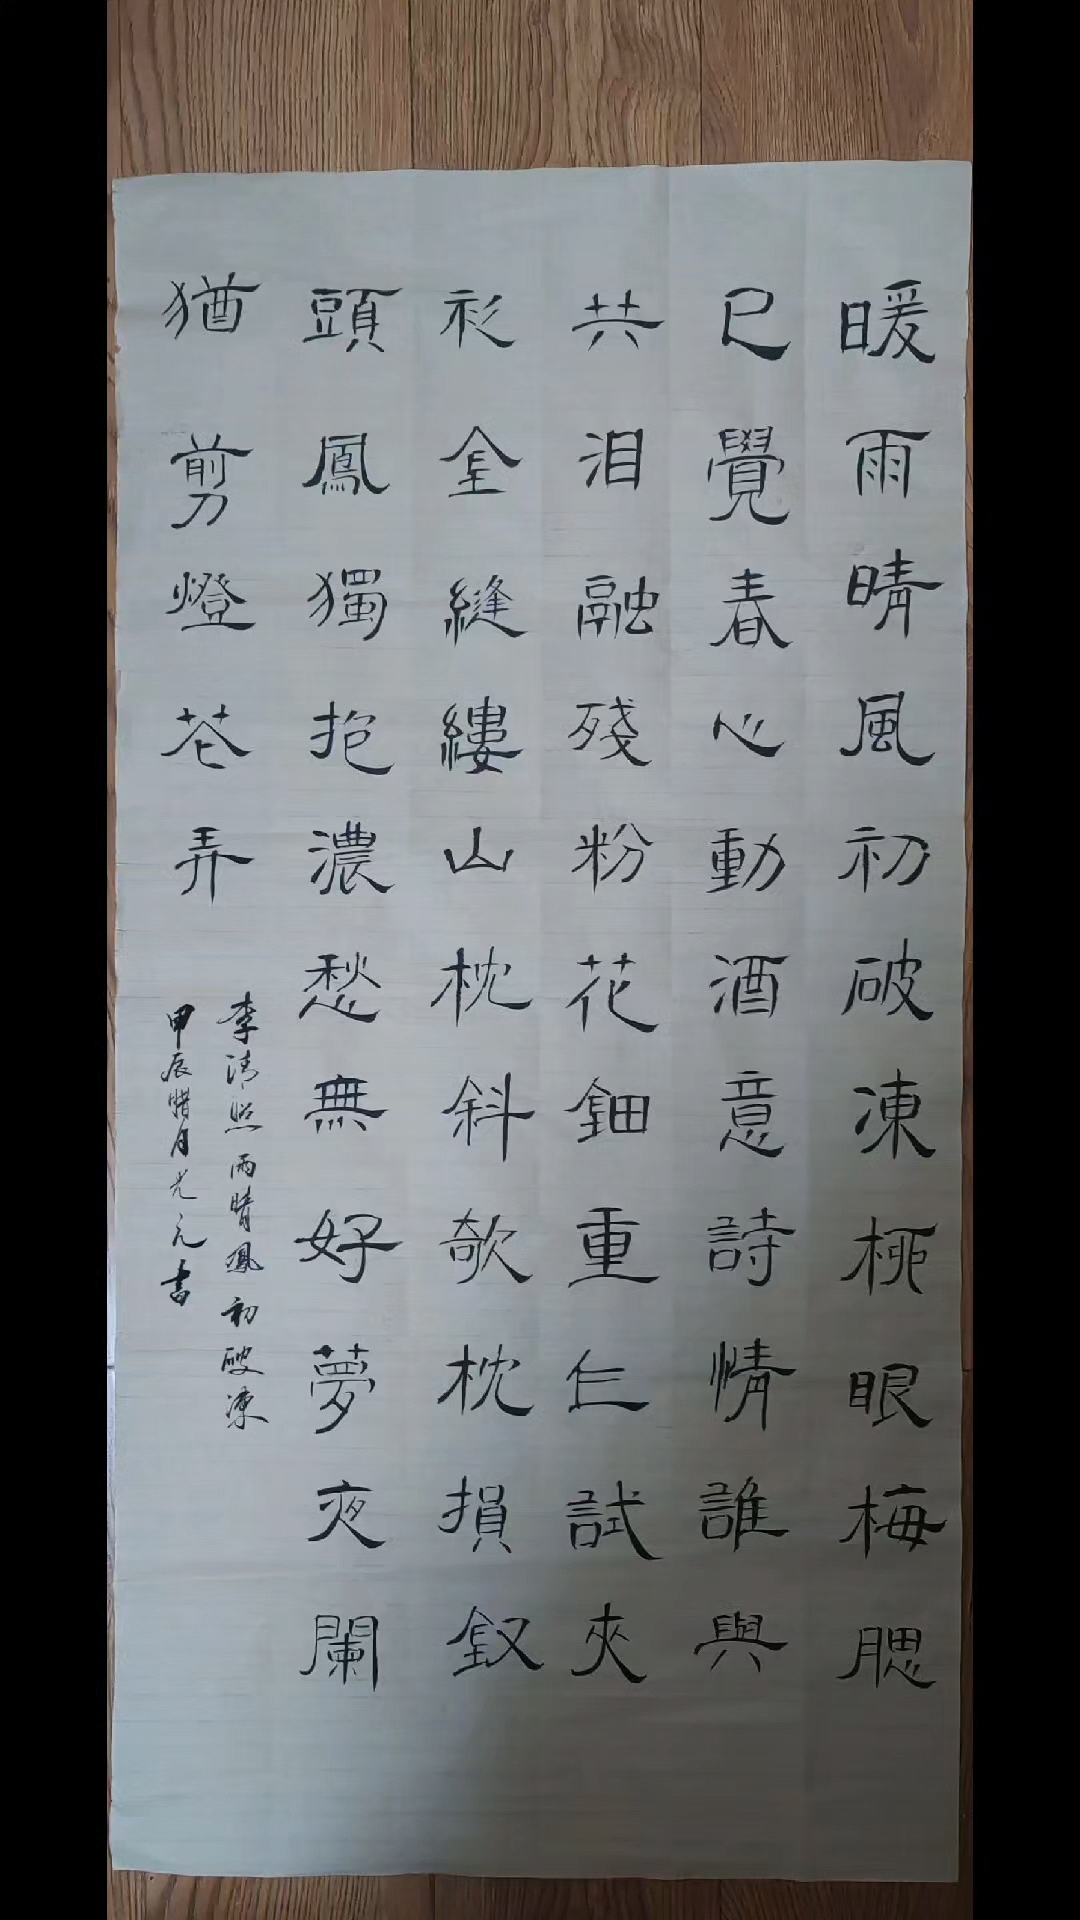 暖雨晴風初破凍桃眼梅腮
已覺春心動酒意詩情誰與
共泪融殘粉花鈿重乍試夾
衫金縫縷山枕斜欹枕損釵
頭鳳獨抱濃愁無好夢夜闌
猶剪燈花弄
李清照雨晴風初破凍
甲辰腊月光元書